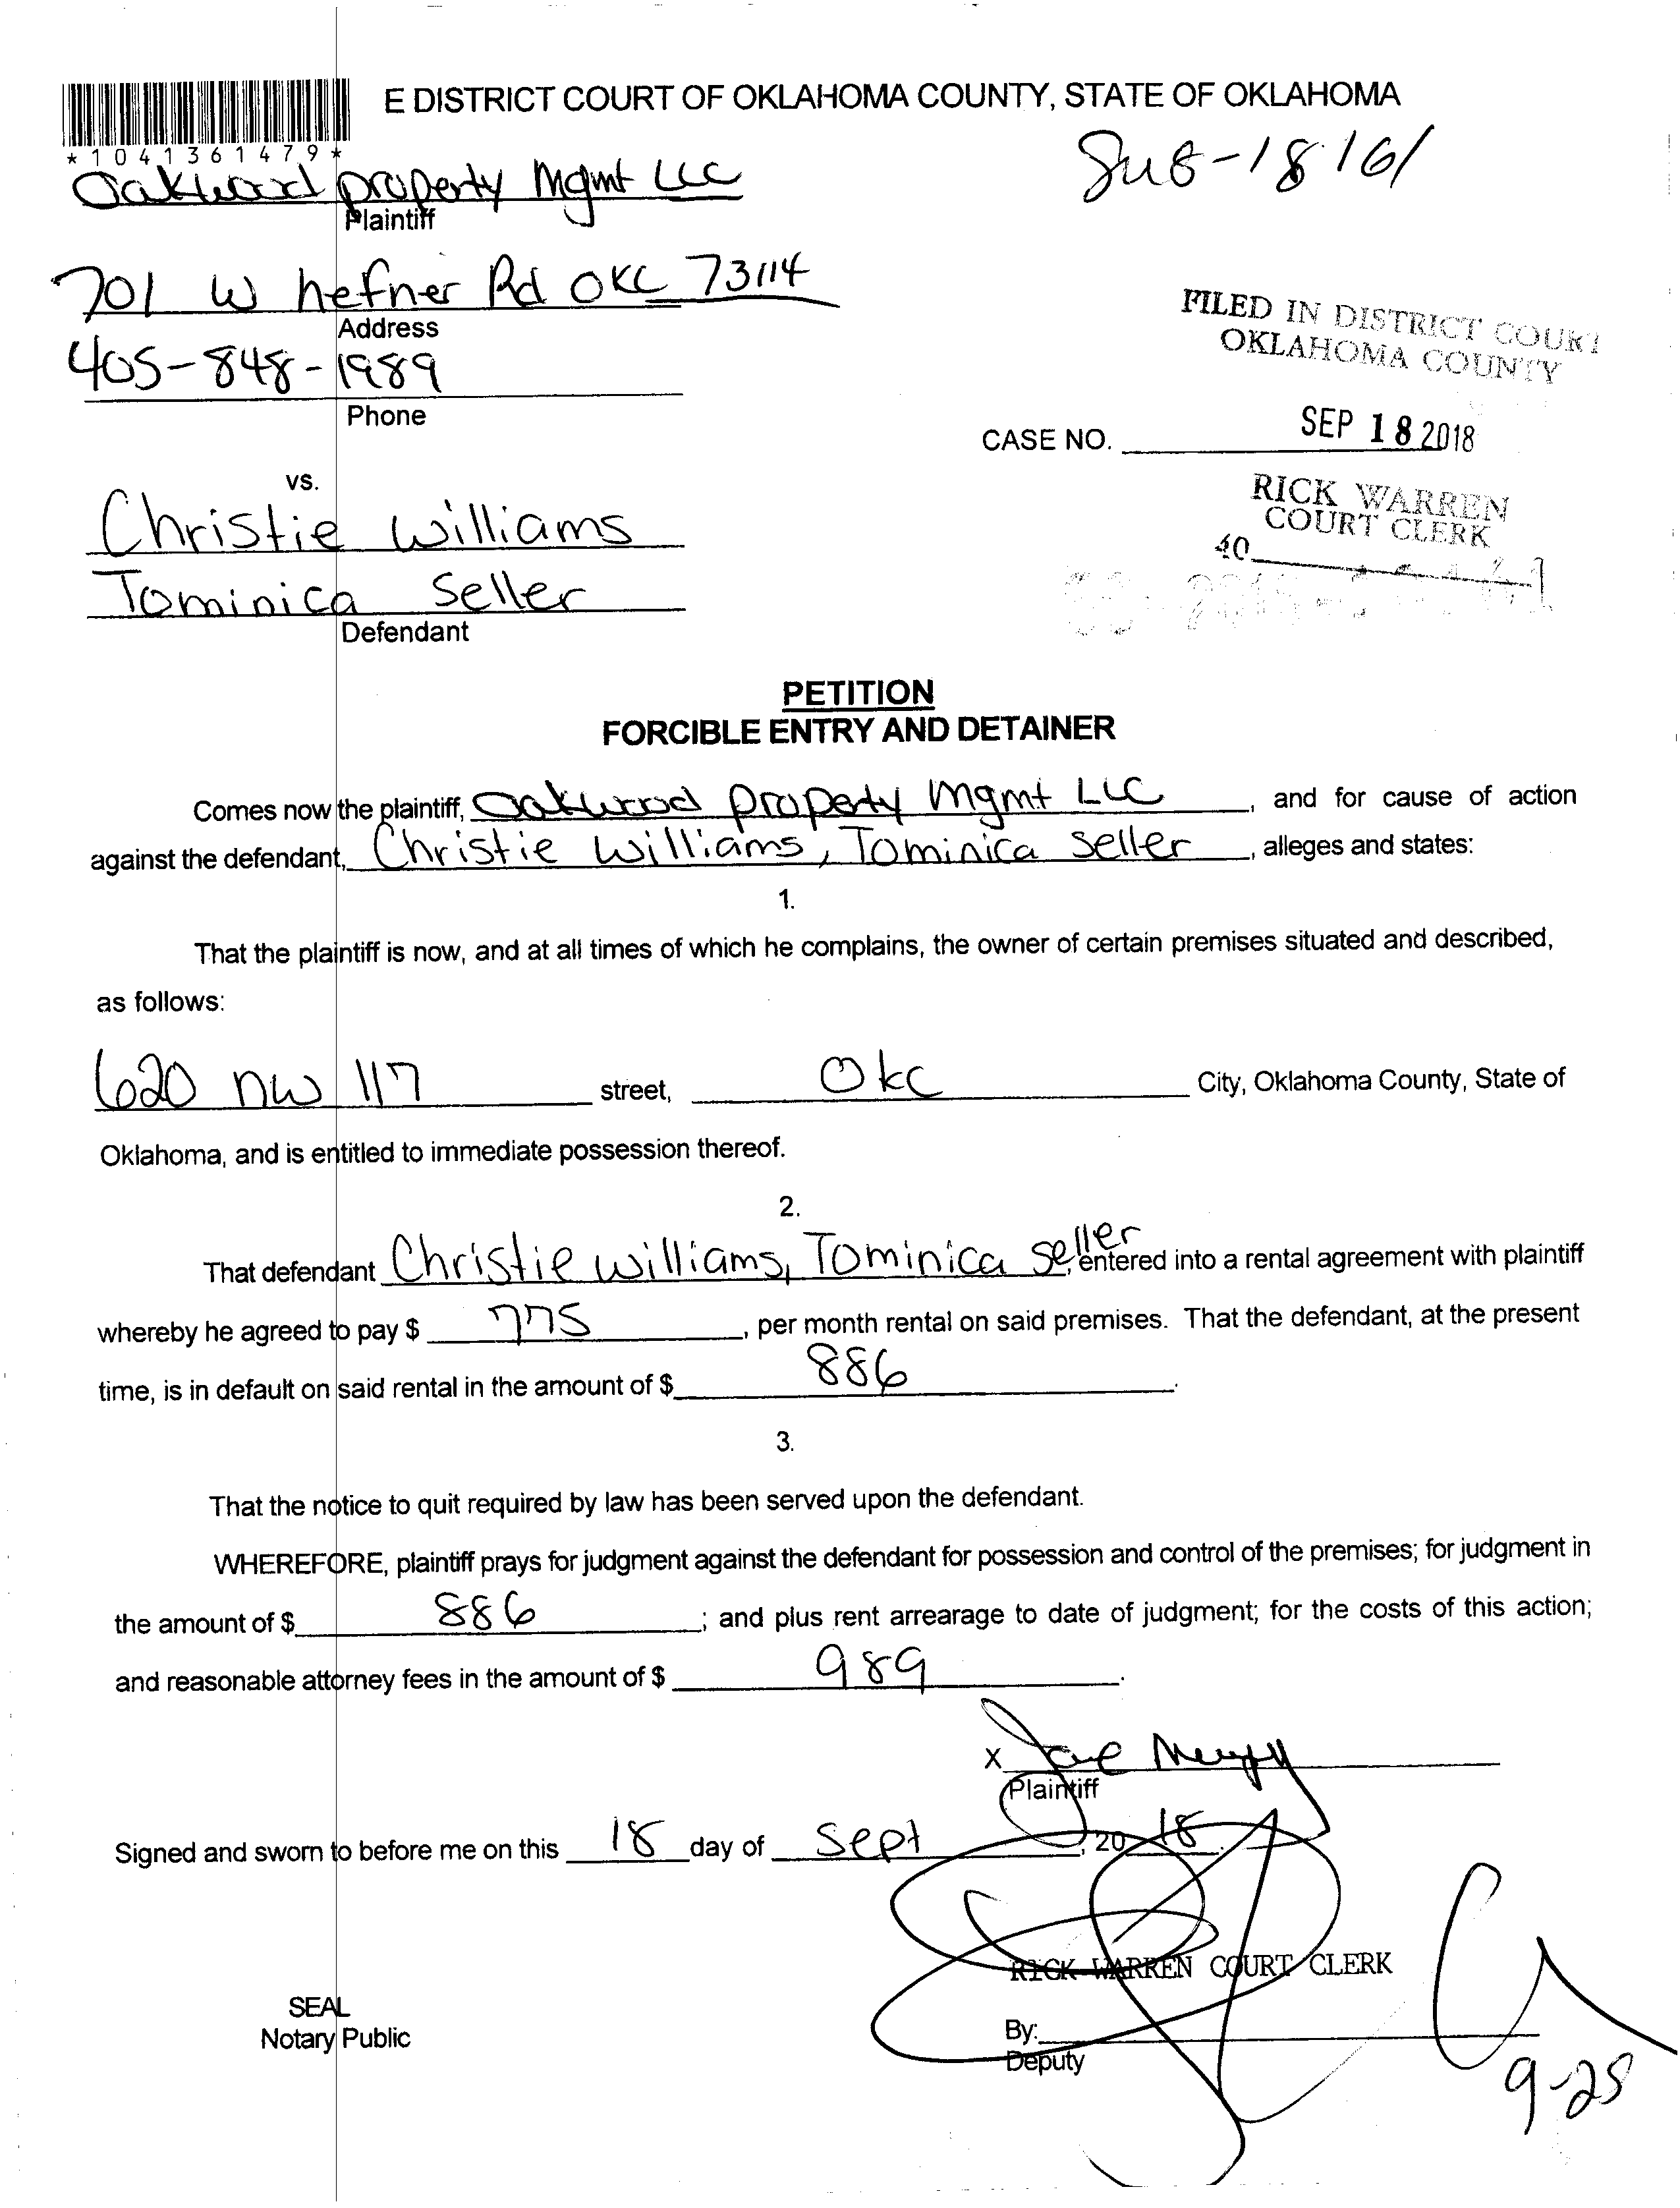 E DISTRICT COURT OF OKLAHOMA COUNTY, STATE OF OKLAHOMA
*1041361479*
Oakwood property Mgmt LLC
Plaintiff
701 W hefner Rd OKC 73114
Address
405-848-1989
Phone
FILED IN DISTRICT COURT
OKLAHOMA COUNTY
CASE NO. SEP 18 2018
RICK WARREN
COURT CLERK
40
vs.
Christie Williams
Tominica Seller
Defendant
PETITION
FORCIBLE ENTRY AND DETAINER
Comes now the plaintiff, Oakwood property Mgmt LLC, and for cause of action
against the defendant, Christie Williams, Tominica Seller, alleges and states:
1.
That the plaintiff is now, and at all times of which he complains, the owner of certain premises situated and described,
as follows:
620 nw 117 street, Okc City, Oklahoma County, State of
Oklahoma, and is entitled to immediate possession thereof.
2.
That defendant Christie Williams, Tominica Seller, entered into a rental agreement with plaintiff
whereby he agreed to pay $ 775, per month rental on said premises. That the defendant, at the present
time, is in default on said rental in the amount of $ 886.
3.
That the notice to quit required by law has been served upon the defendant.
WHEREFORE, plaintiff prays for judgment against the defendant for possession and control of the premises; for judgment in
the amount of $ 886; and plus rent arrearage to date of judgment; for the costs of this action;
and reasonable attorney fees in the amount of $ 989.
X
Plaintiff
Signed and sworn to before me on this 18 day of Sept, 20 18.
RICK WARREN COURT CLERK
SEAL
Notary Public
By:
Deputy
9-28